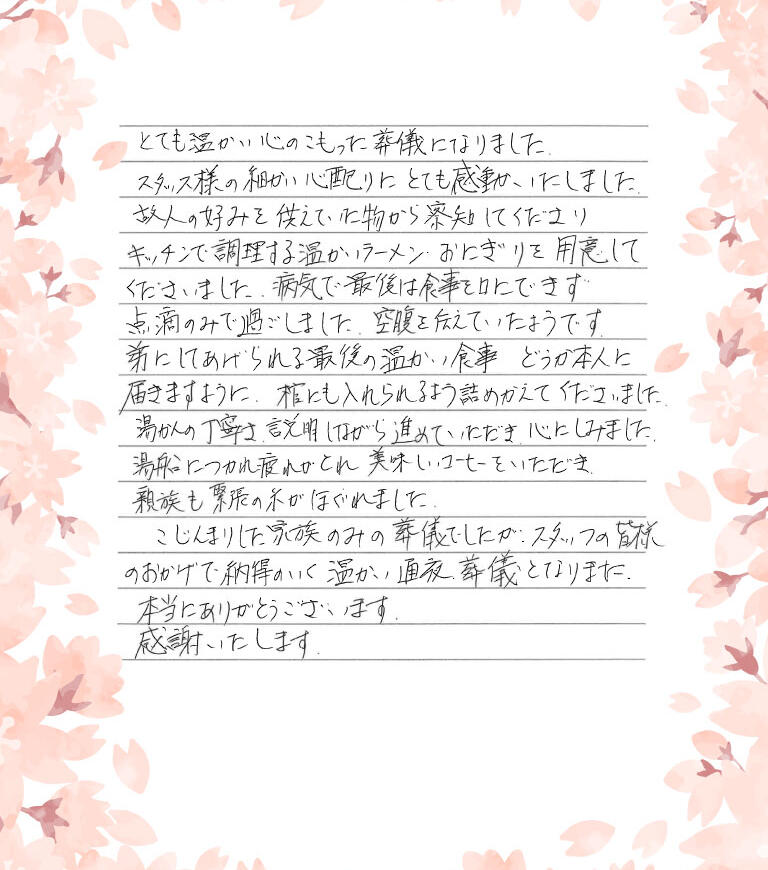 とても温かい心のこもった葬儀になりました.
スタッス様の細かい心配りにとても感動いたしました.
故人の好みを供えていた物から察知してくださり
キッチンで調理する温かいラーメン.おにぎりを用意して
くださいました.病気で最後は食事を口にできず
点滴のみで過ごしました.空腹を伝えていたようです.
弟にしてあげられる最後の温かい食事 どうか本人に
届きますように.棺にも入れられるよう詰めかえてくださいました.
湯かんの丁寧さ.説明しながら進めていただき.心にしみました.
湯船につかれ疲れがとれ 美味しいコーヒーをいただき.
親族も緊張の糸がほぐれました.
こじんまりした家族のみの葬儀でしたが.スタッフの皆様
のおかげで納得のいく温かい通夜.葬儀となりまた.
本当にありがとうございます.
感謝いたします.